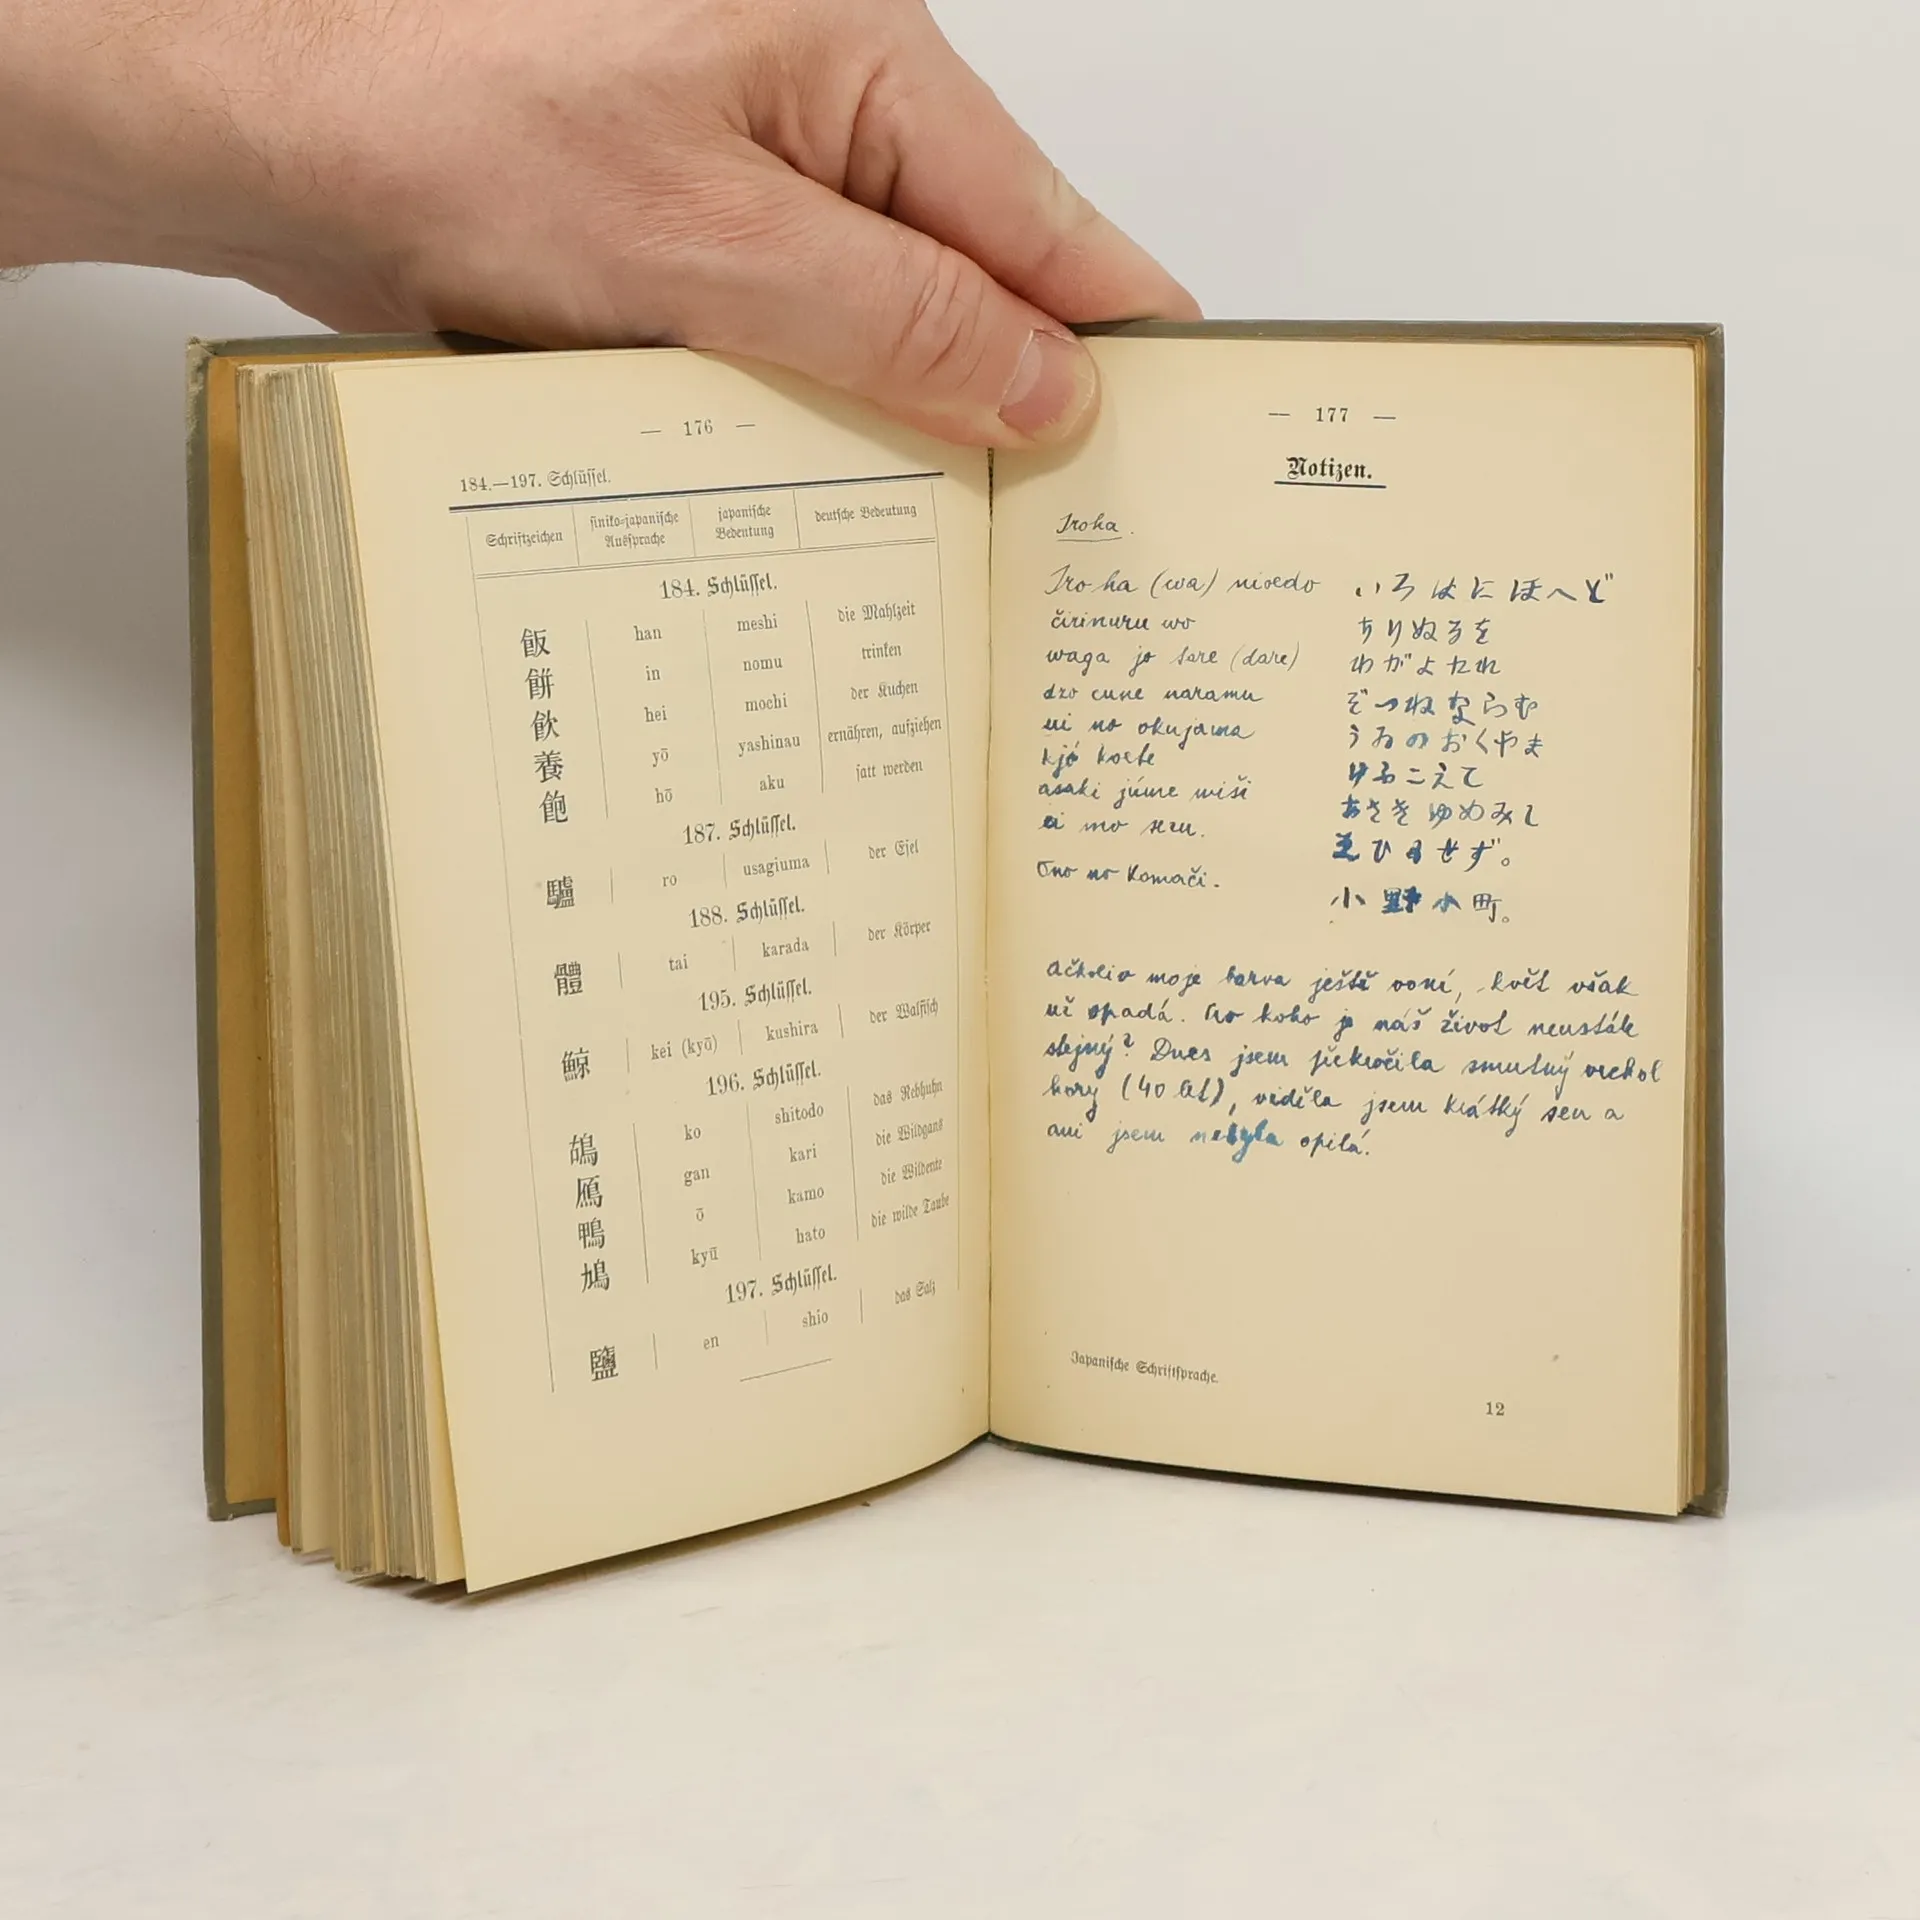 — 176 —
184.—197. Schlüssel.
Schriftzeichen siniko=japanische Aussprache japanische Bedeutung deutsche Bedeutung
184. Schlüssel.
飯 han meshi die Mahlzeit
餠 in nomu trinken
飮 hei mochi der Kuchen
養 yō yashinau ernähren, aufziehen
飽 hō aku satt werden
187. Schlüssel.
驢 ro usagiuma der Esel
188. Schlüssel.
體 tai karada der Körper
195. Schlüssel.
鯨 kei (kyū) kushira der Walfisch
196. Schlüssel.
鴣 ko shitodo das Rebhuhn
鴈 gan kari die Wildgans
鴨 ō kamo die Wildente
鳩 kyū hato die wilde Taube
197. Schlüssel.
鹽 en shio das Salz
— 177 —
Notizen.
Iroha.
Iro ha (wa) nioedo いろはにほへど
čirinuru wo ちりぬるを
waga jo tare (dare) わがよたれ
dzo cune naramu ぞつねならむ
ui no okujama うゐのおくやま
kjó koete けふこえて
asaki júme miši あさきゆめみし
ei mo sezu. ゑひもせず。
Ono no Komači. 小野小町。
Ačkoliv moje barva ještě voní, květ však
už opadá. Pro koho je náš život neustále
stejný? Dnes jsem překročila smutný vrchol
hory (40 let), viděla jsem krátký sen a
ani jsem nebyla opilá.
Japanische Schriftsprache.
12